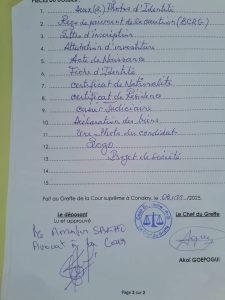 PIECES DU DOSSIER
1. deux (2) Photos d'Identité
2. Reçu de paiement de la caution (BCRG)
3. Lettre d'inscription
4. Attestation d'investiture
5. Acte de Naissance
6. Fiche d'Identité
7. certificat de Nationalité
8. certificat de Résidence
9. casier Judiciaire
10. Déclaration des biens
11. Une Photo du candidat
12. Logo
13. Projet de société
14.
15.
Fait au Greffe de la Cour suprême à Conakry, le /2025.
Le déposant
Lu et approuvé
Le Chef du Greffe
Avocat à la Cour
Akoï GOEPOGUI
Page 2 sur 2